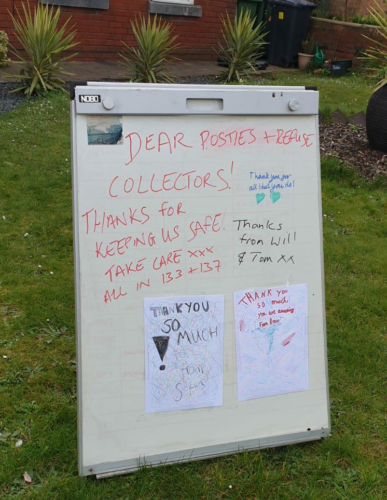 NOBO
DEAR POSTIES + REFUSE
COLLECTORS!
THANKS for
KEEPING US SAFE.
TAKE CARE xxx
ALL IN 133 + 137
Thank you for
all that you do!
Thanks
from Will
& Tom xx
THANK YOU
SO
MUCH
THANK YOU
SO much
you are amazing